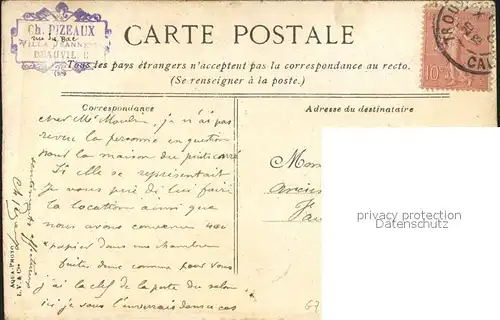 Ch. DIZEAUX
rue du Bac
VILLA JEANNE
DEAUVILLE
CARTE POSTALE
Tous les pays étrangers n'acceptent pas la correspondance au recto.
(Se renseigner à la poste.)
TROUV
CAL
10c
Correspondance
Adresse du destinataire
cher Mr Moulin, je n'ai pas
revu la personne en question
pour la maison du petit carré
Si elle se représentait
je vous prie de lui faire
la location ainsi que
nous avons convenu 400
papier dans une chambre
faites donc comme pour vous
j'ai la clef de la porte du salon
ici je vous l'enverrais dans ce cas
Ch Dizeaux
AQUA-PHOTO
L. V. & Cie
Mon
privacy protection
Datenschutz
67